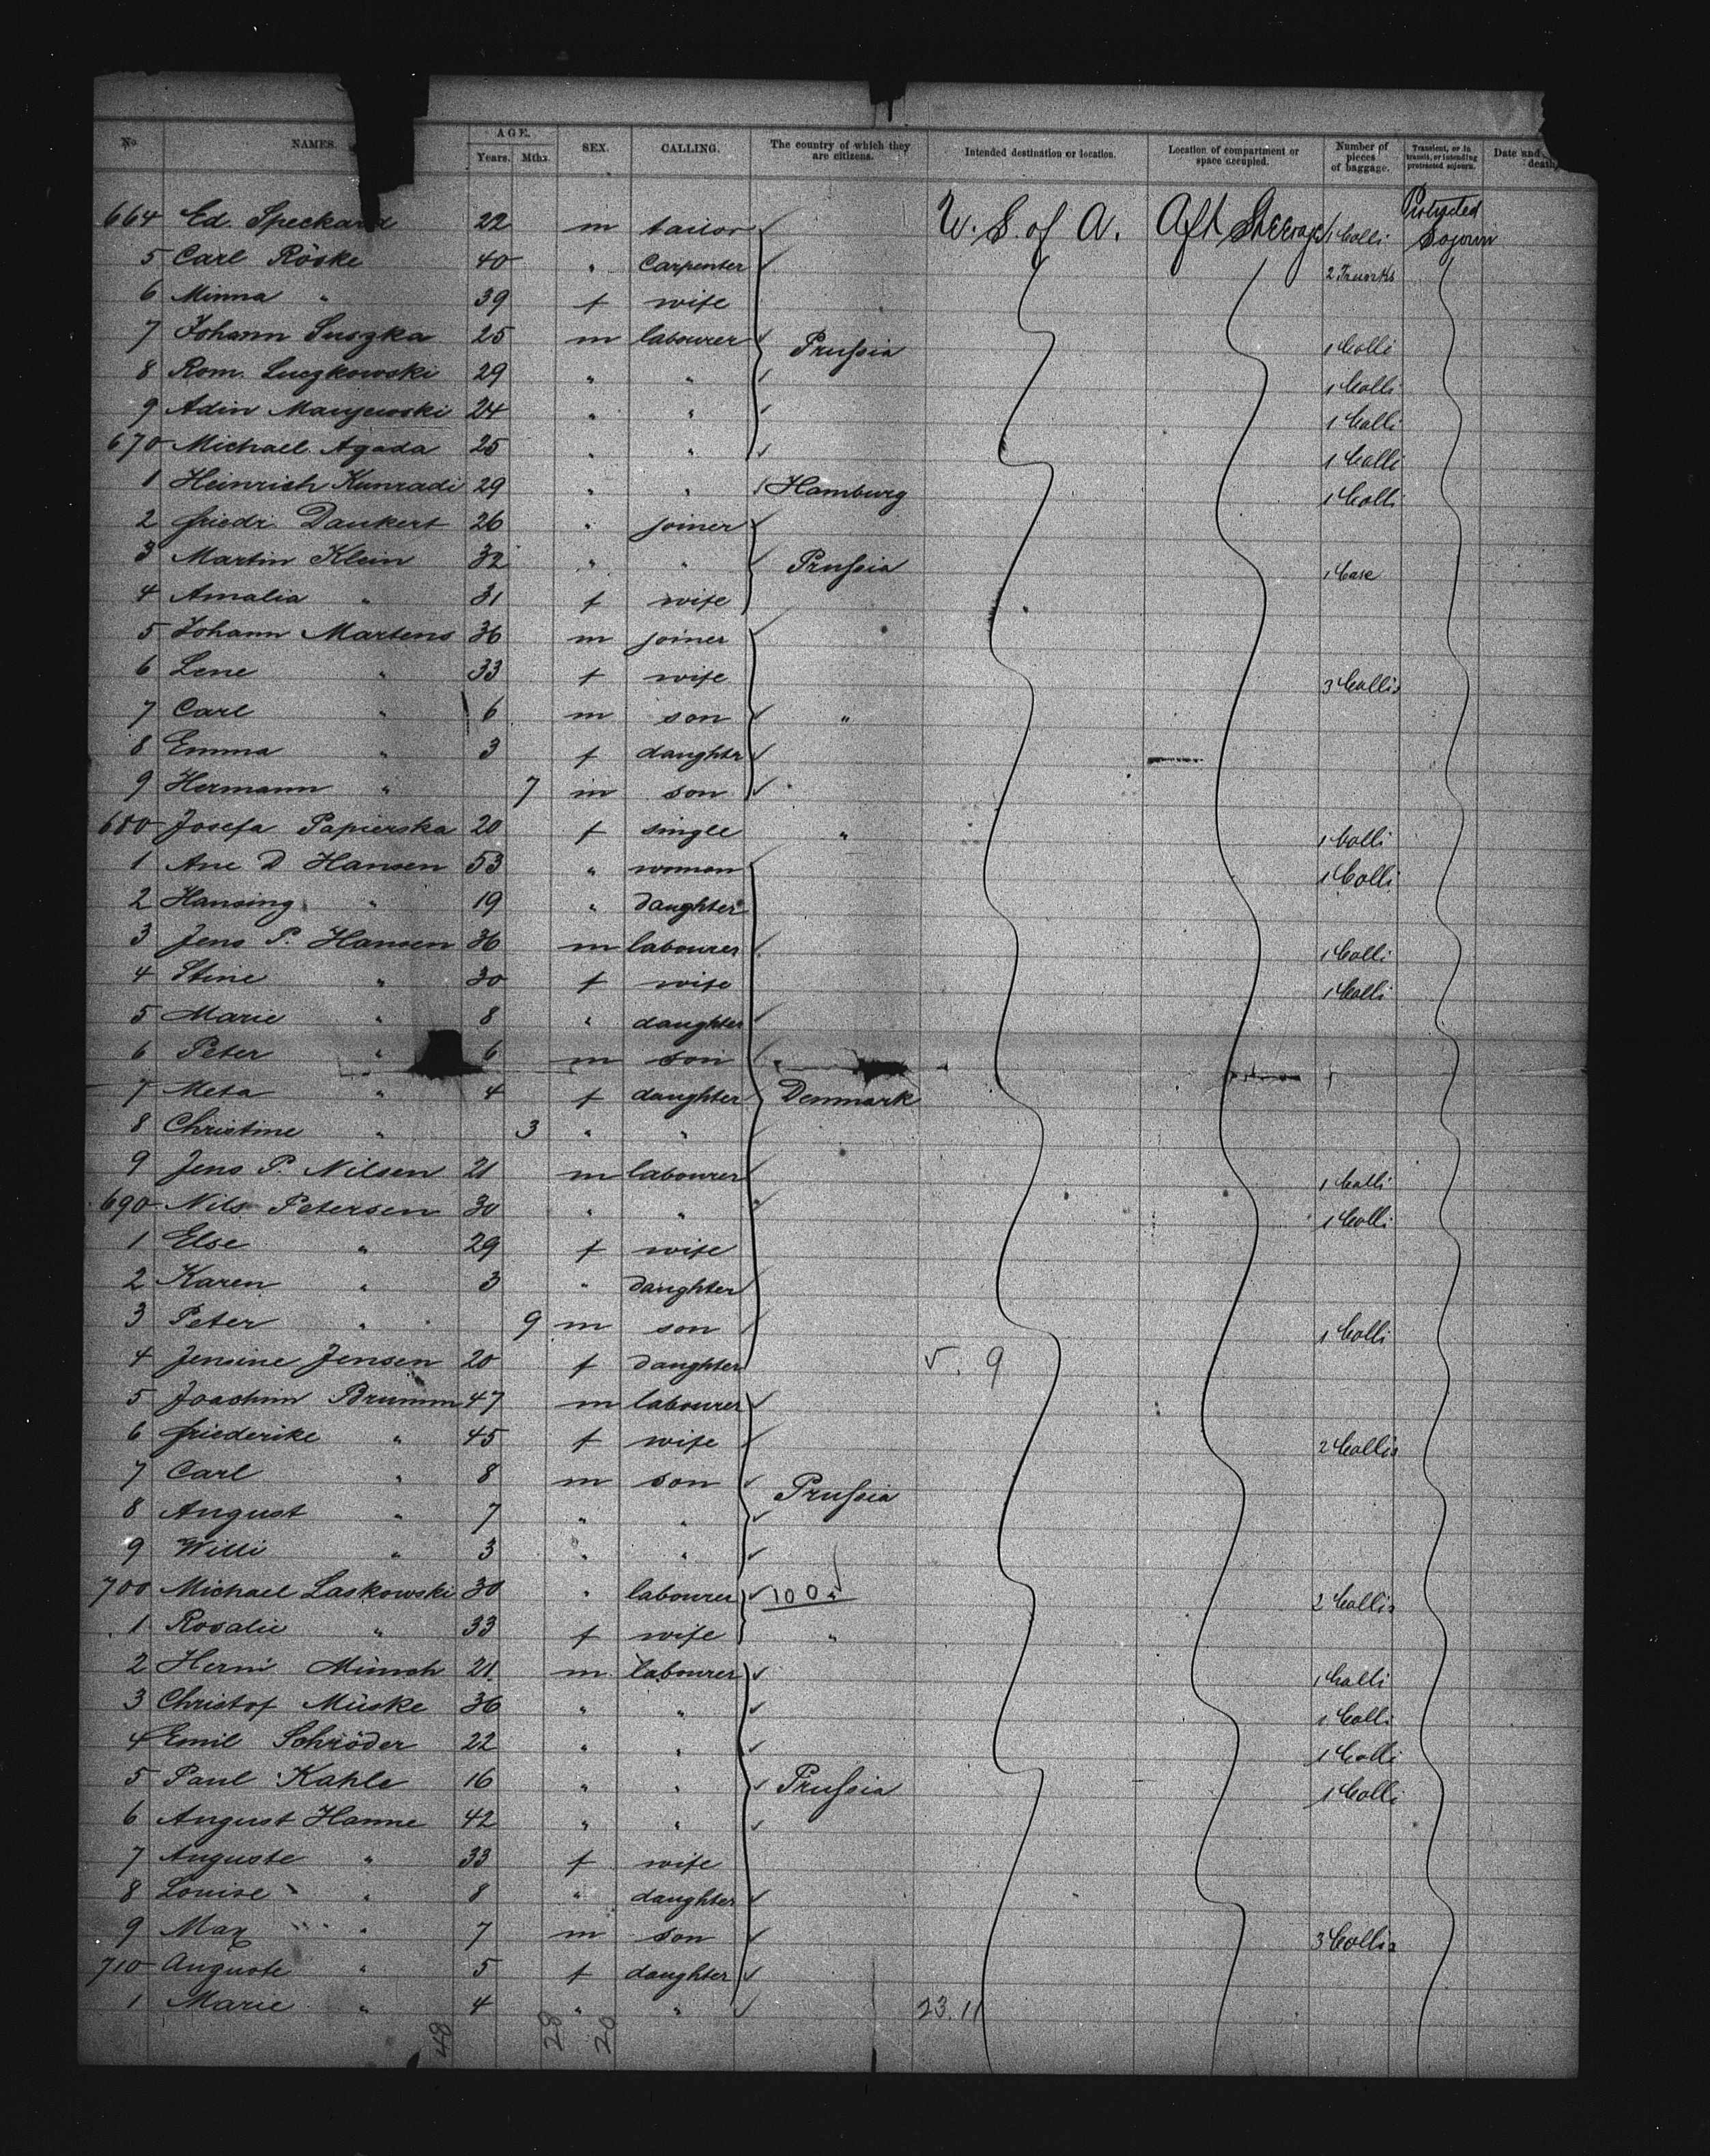 No. NAMES. AGE. Years. Mths. SEX. CALLING. The country of which they are citizens. Intended destination or location. Location of compartment or space occupied. Number of pieces of baggage. Transient, or in transit, or intending protracted sojourn. Date and death
664 Ed. Speckard 22 m tailor U. S. of A. Aft Steerage 1 Colli Protracted Sojourn
5 Carl Röske 40 " Carpenter 2 Trunks
6 Minna " 39 f wife
7 Johann Suszka 25 m labourer Prussia 1 Colli
8 Rom. Luczkowski 29 " " 1 Colli
9 Adin 24 " " 1 Colli
670 Michael Agada 25 " " 1 Colli
1 Heinrich Kunradi 29 " " Hamburg 1 Colli
2 Friedr. Dankert 26 " joiner
3 Martin Klein 32 " " Prussia 1 Case
4 Amalia " 31 f wife
5 Johann Martens 36 m joiner
6 Lene " 33 f wife 3 Collis
7 Carl " 6 m son "
8 Emma " 3 f daughtr
9 Hermann " 7 m son
680 Josefa Papierska 20 f single " 1 Colli
1 Ane D Hansen 53 " woman 1 Colli
2 Hansing " 19 " daughter
3 Jens P. Hansen 36 m labourer 1 Colli
4 Stine " 30 f wife 1 Colli
5 Marie " 8 " daughter
6 Peter " 6 m son
7 Meta " 4 f daughter Denmark
8 Christine " 3 " "
9 Jens P. Nilsen 21 m labourer 1 Colli
690 Nils Petersen 30 " " 1 Colli
1 Else " 29 f wife
2 Karen " 3 " daughter
3 Peter " 9 m son 1 Colli
4 Jensine Jensen 20 f daughter 9
5 Joachim Brumm 47 m labourer
6 Friederike " 45 f wife 2 Collis
7 Carl " 8 m son Prussia
8 August " 7 " "
9 Willi " 3 " "
700 Michael Laskowski 30 " labourer 100 2 Collis
1 Rosalie " 33 f wife "
2 Herm Münch 21 m labourer 1 Colli
3 Christof Müske 36 " " 1 Colli
4 Emil Schröder 22 " " 1 Colli
5 Paul Kahle 16 " " Prussia 1 Colli
6 August Hanne 42 " "
7 Auguste " 33 f wife
8 Louise " 8 " daughter
9 Max " 7 m son 3 Collis
710 Auguste " 5 f daughter
1 Marie " 4 " " 23. 11
48 28 20